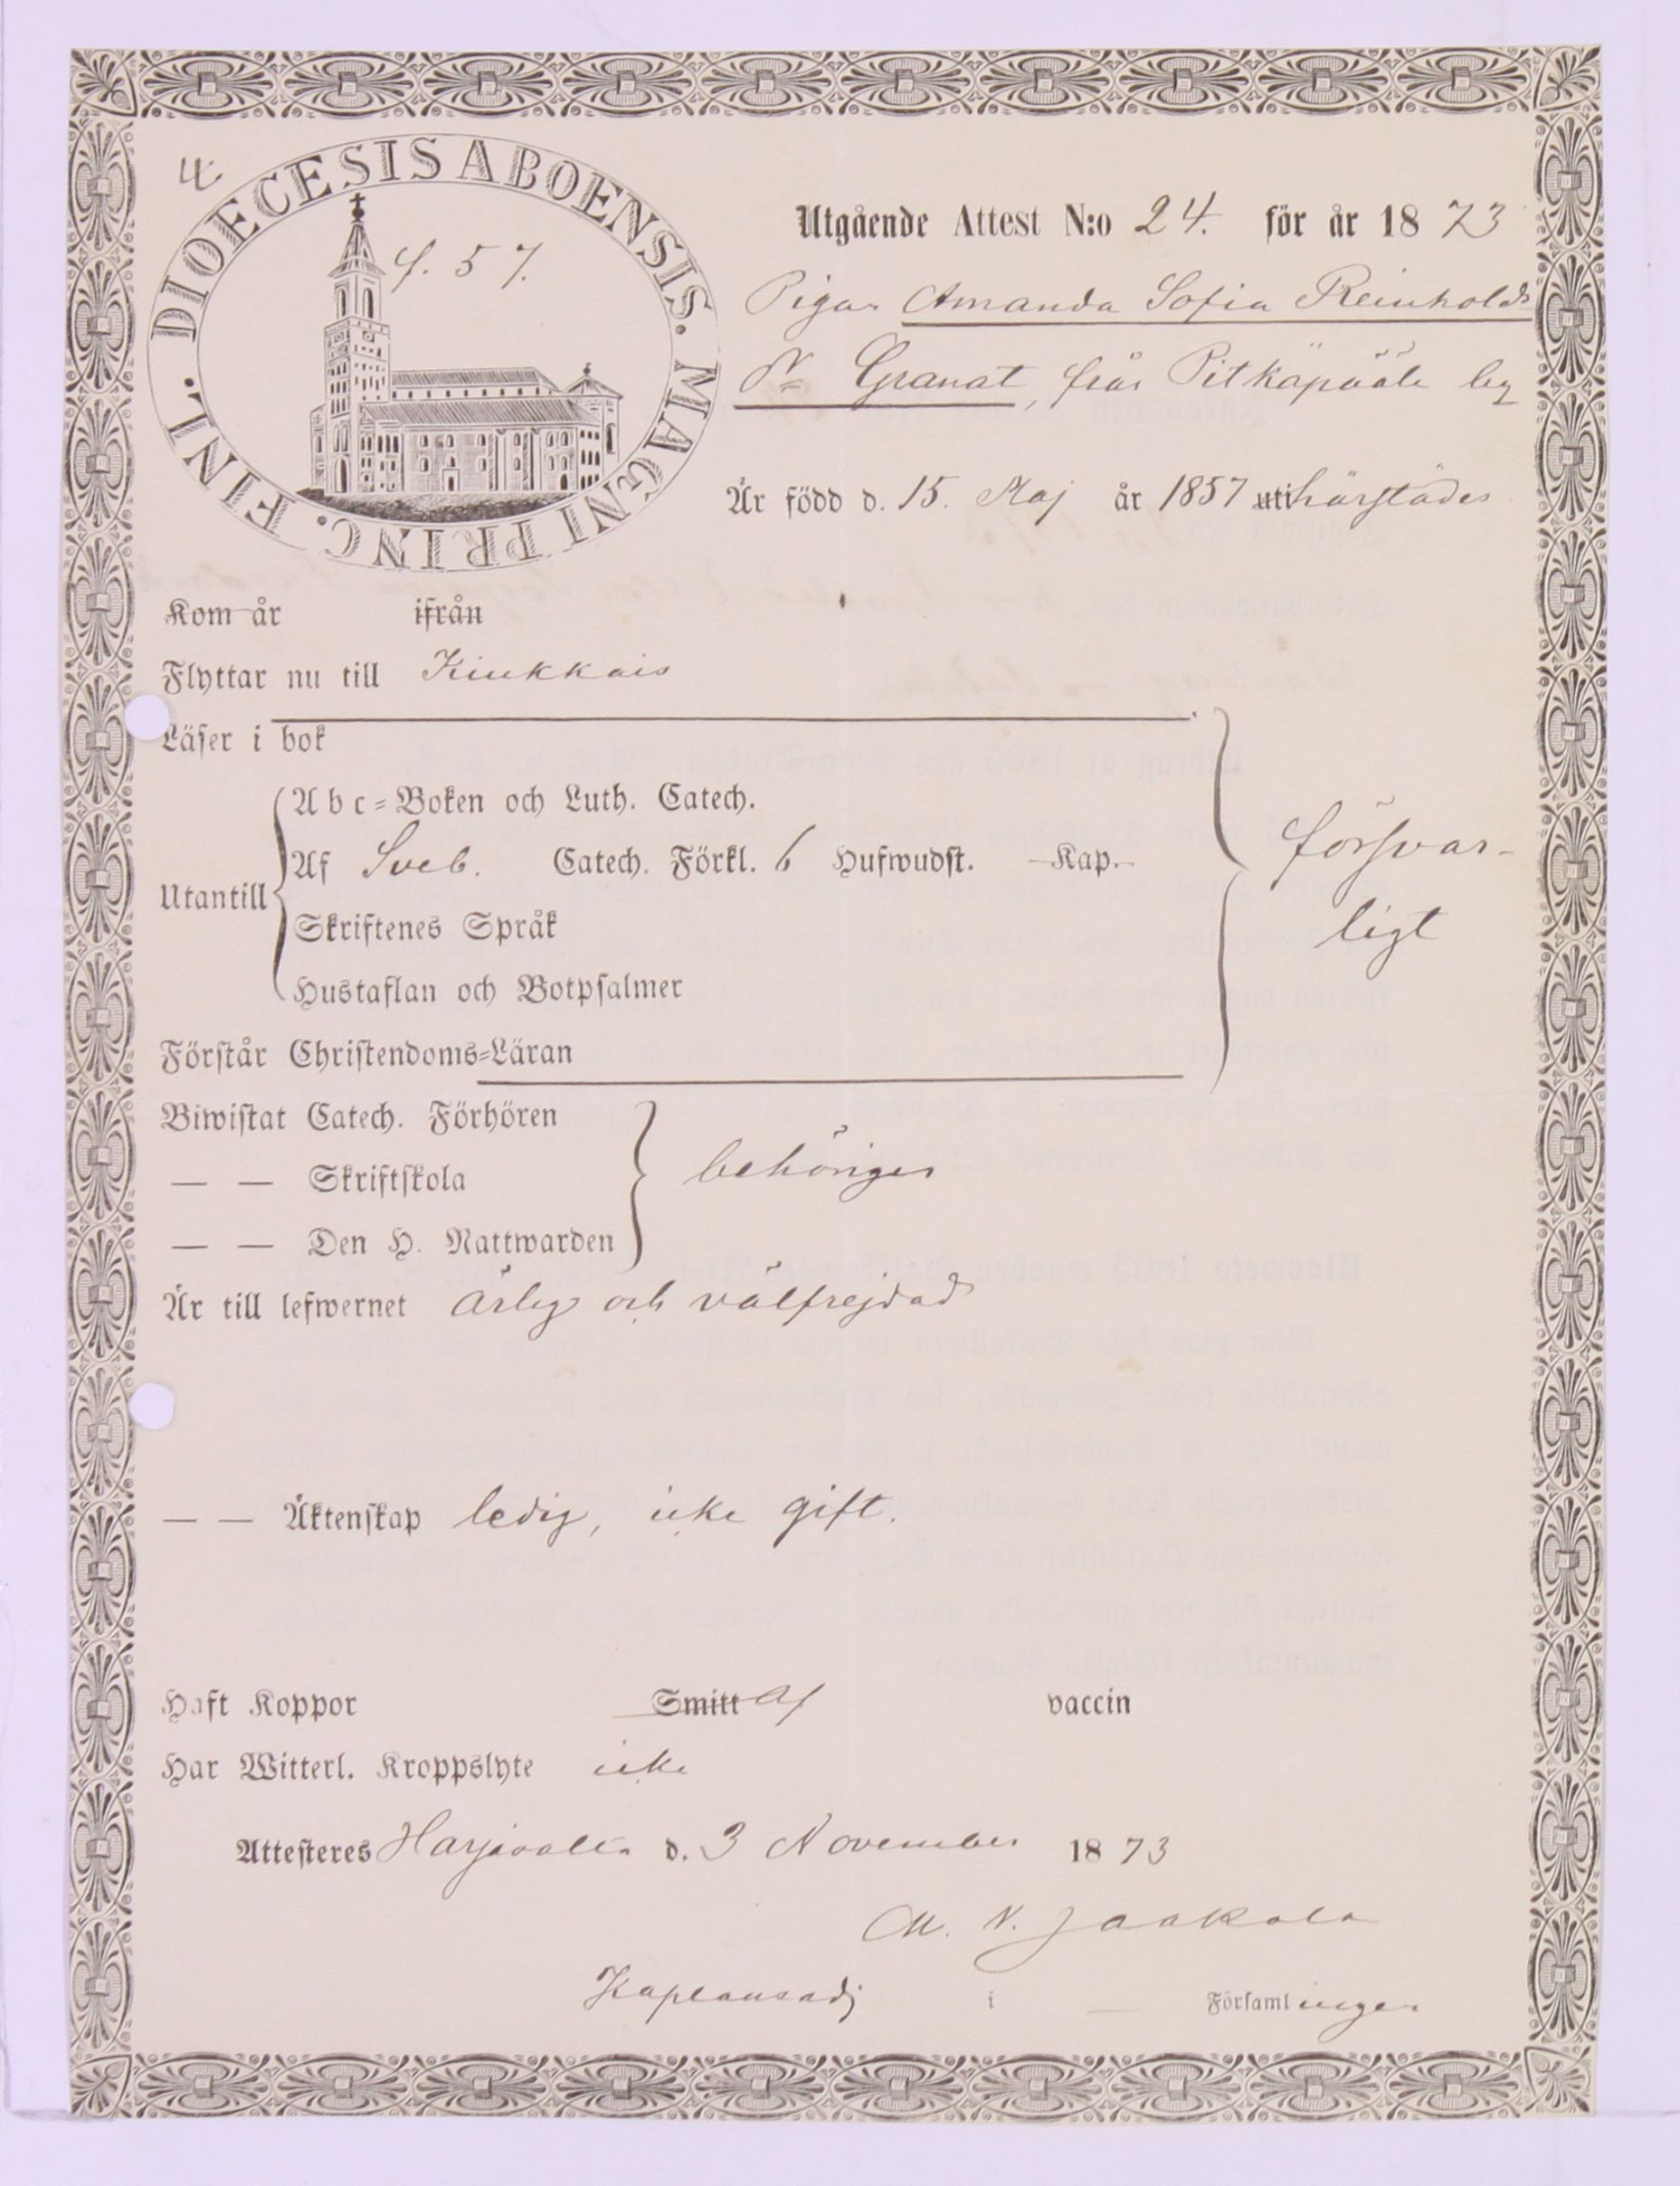 4.
DIOECESIS ABOENSIS. MAGNI PRINC. FINL.
f. 57.
Utgående Attest N:o 24. för år 1873
Pigan Amanda Sofia Reinholds
dr Granat, från Pitkäpäälä by
Är född d. 15. Maj år 1857 uti härstädes
Kom år ifrån
Flyttar nu till Kiukkais
Läser i bok
Abc=Boken och Luth. Catech.
Af Sveb. Catech. Förkl. 6 Hufwudst. Kap.
Utantill
Skriftenes Språk
Hustaflan och Botpsalmer
försvar-
ligt
Förstår Christendoms=Läran
Biwistat Catech. Förhören
— — Skriftskola
behörigen
— — Den H. Nattwarden
Är till lefwernet ärlig och välfrejdad
— — Äktenskap ledig, icke gift.
Haft Koppor Smitt af vaccin
Har Witterl. Kroppslyte icke
Attesteres Harjavalta d. 3 November 1873
M. N. Jaakola
Kaplansadj i — Församlingen